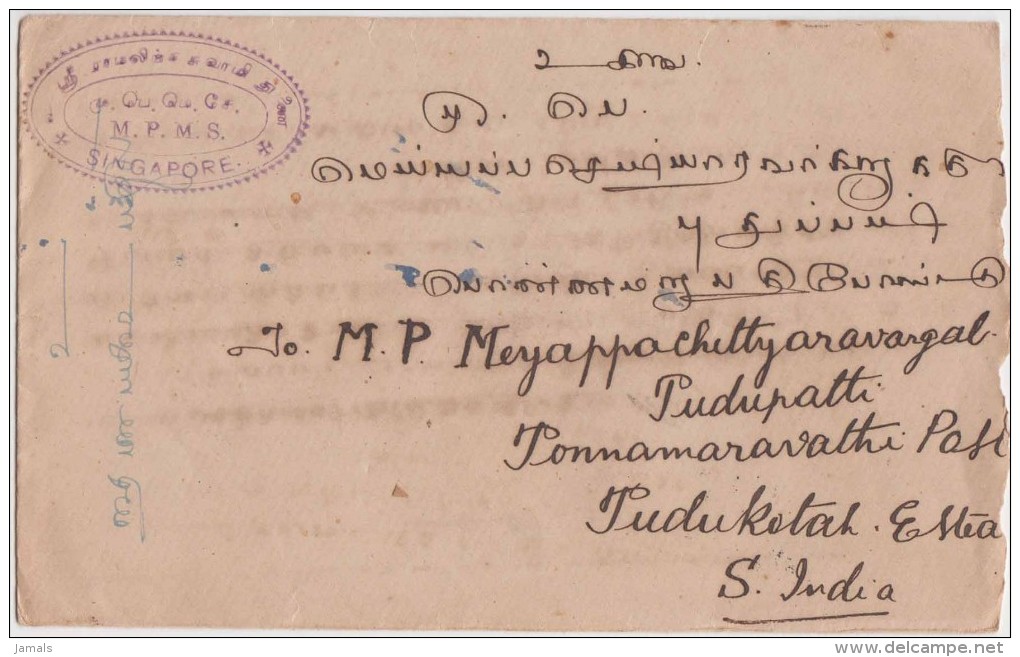 ஸ்ரீ ராமலிங்க சுவாமி துணை
மு. பெ. மெ. சே.
M. P. M. S.
SINGAPORE.
உ துணை.
மு. பெ.
மெய்யப்ப செட்டியாரவர்களுக்கு
புதுப்பட்டி
பொன்னமராபதி போஸ்ட்டு
To. M. P Meyappachettyaravargal.
Pudupatti
Ponnamaravathi Post
Pudukotah. Estea
S. India
jamals
delcampe.net